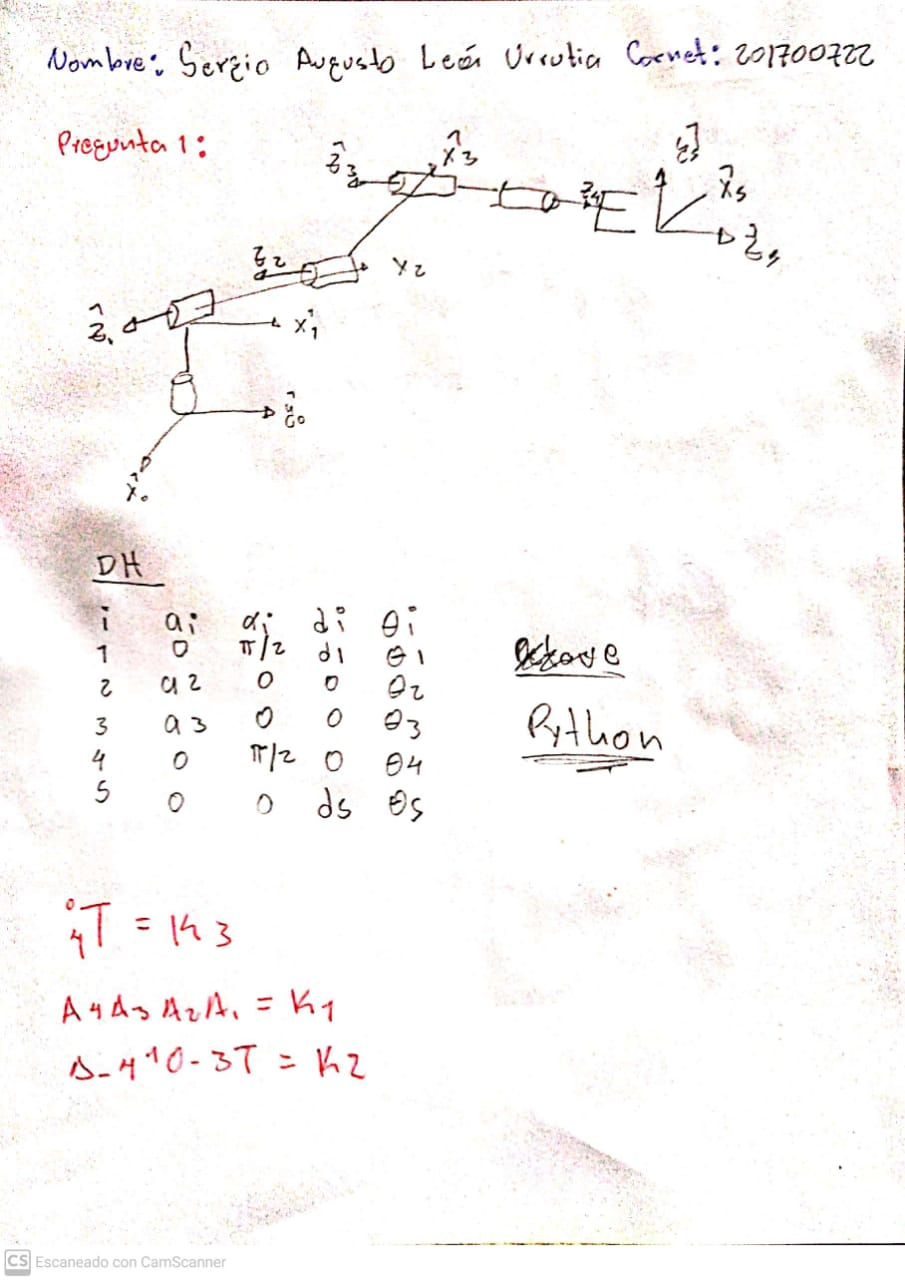 Nombre: Sergio Augusto León Urrutia Carnet: 201700722
Pregunta 1:
ẑ3 x̂3
ẑ5
x̂5
z4
ẑ5
ẑ2 x2
ẑ1 x̂1
ŷ0
x̂0
DH
i ai αi di θi
1 0 π/2 d1 θ1
2 a2 0 0 θ2
3 a3 0 0 θ3
4 0 π/2 0 θ4
5 0 0 d5 θ5
Python
⁰₄T = K3
A4A3A2A1 = K1
K2
CS Escaneado con CamScanner